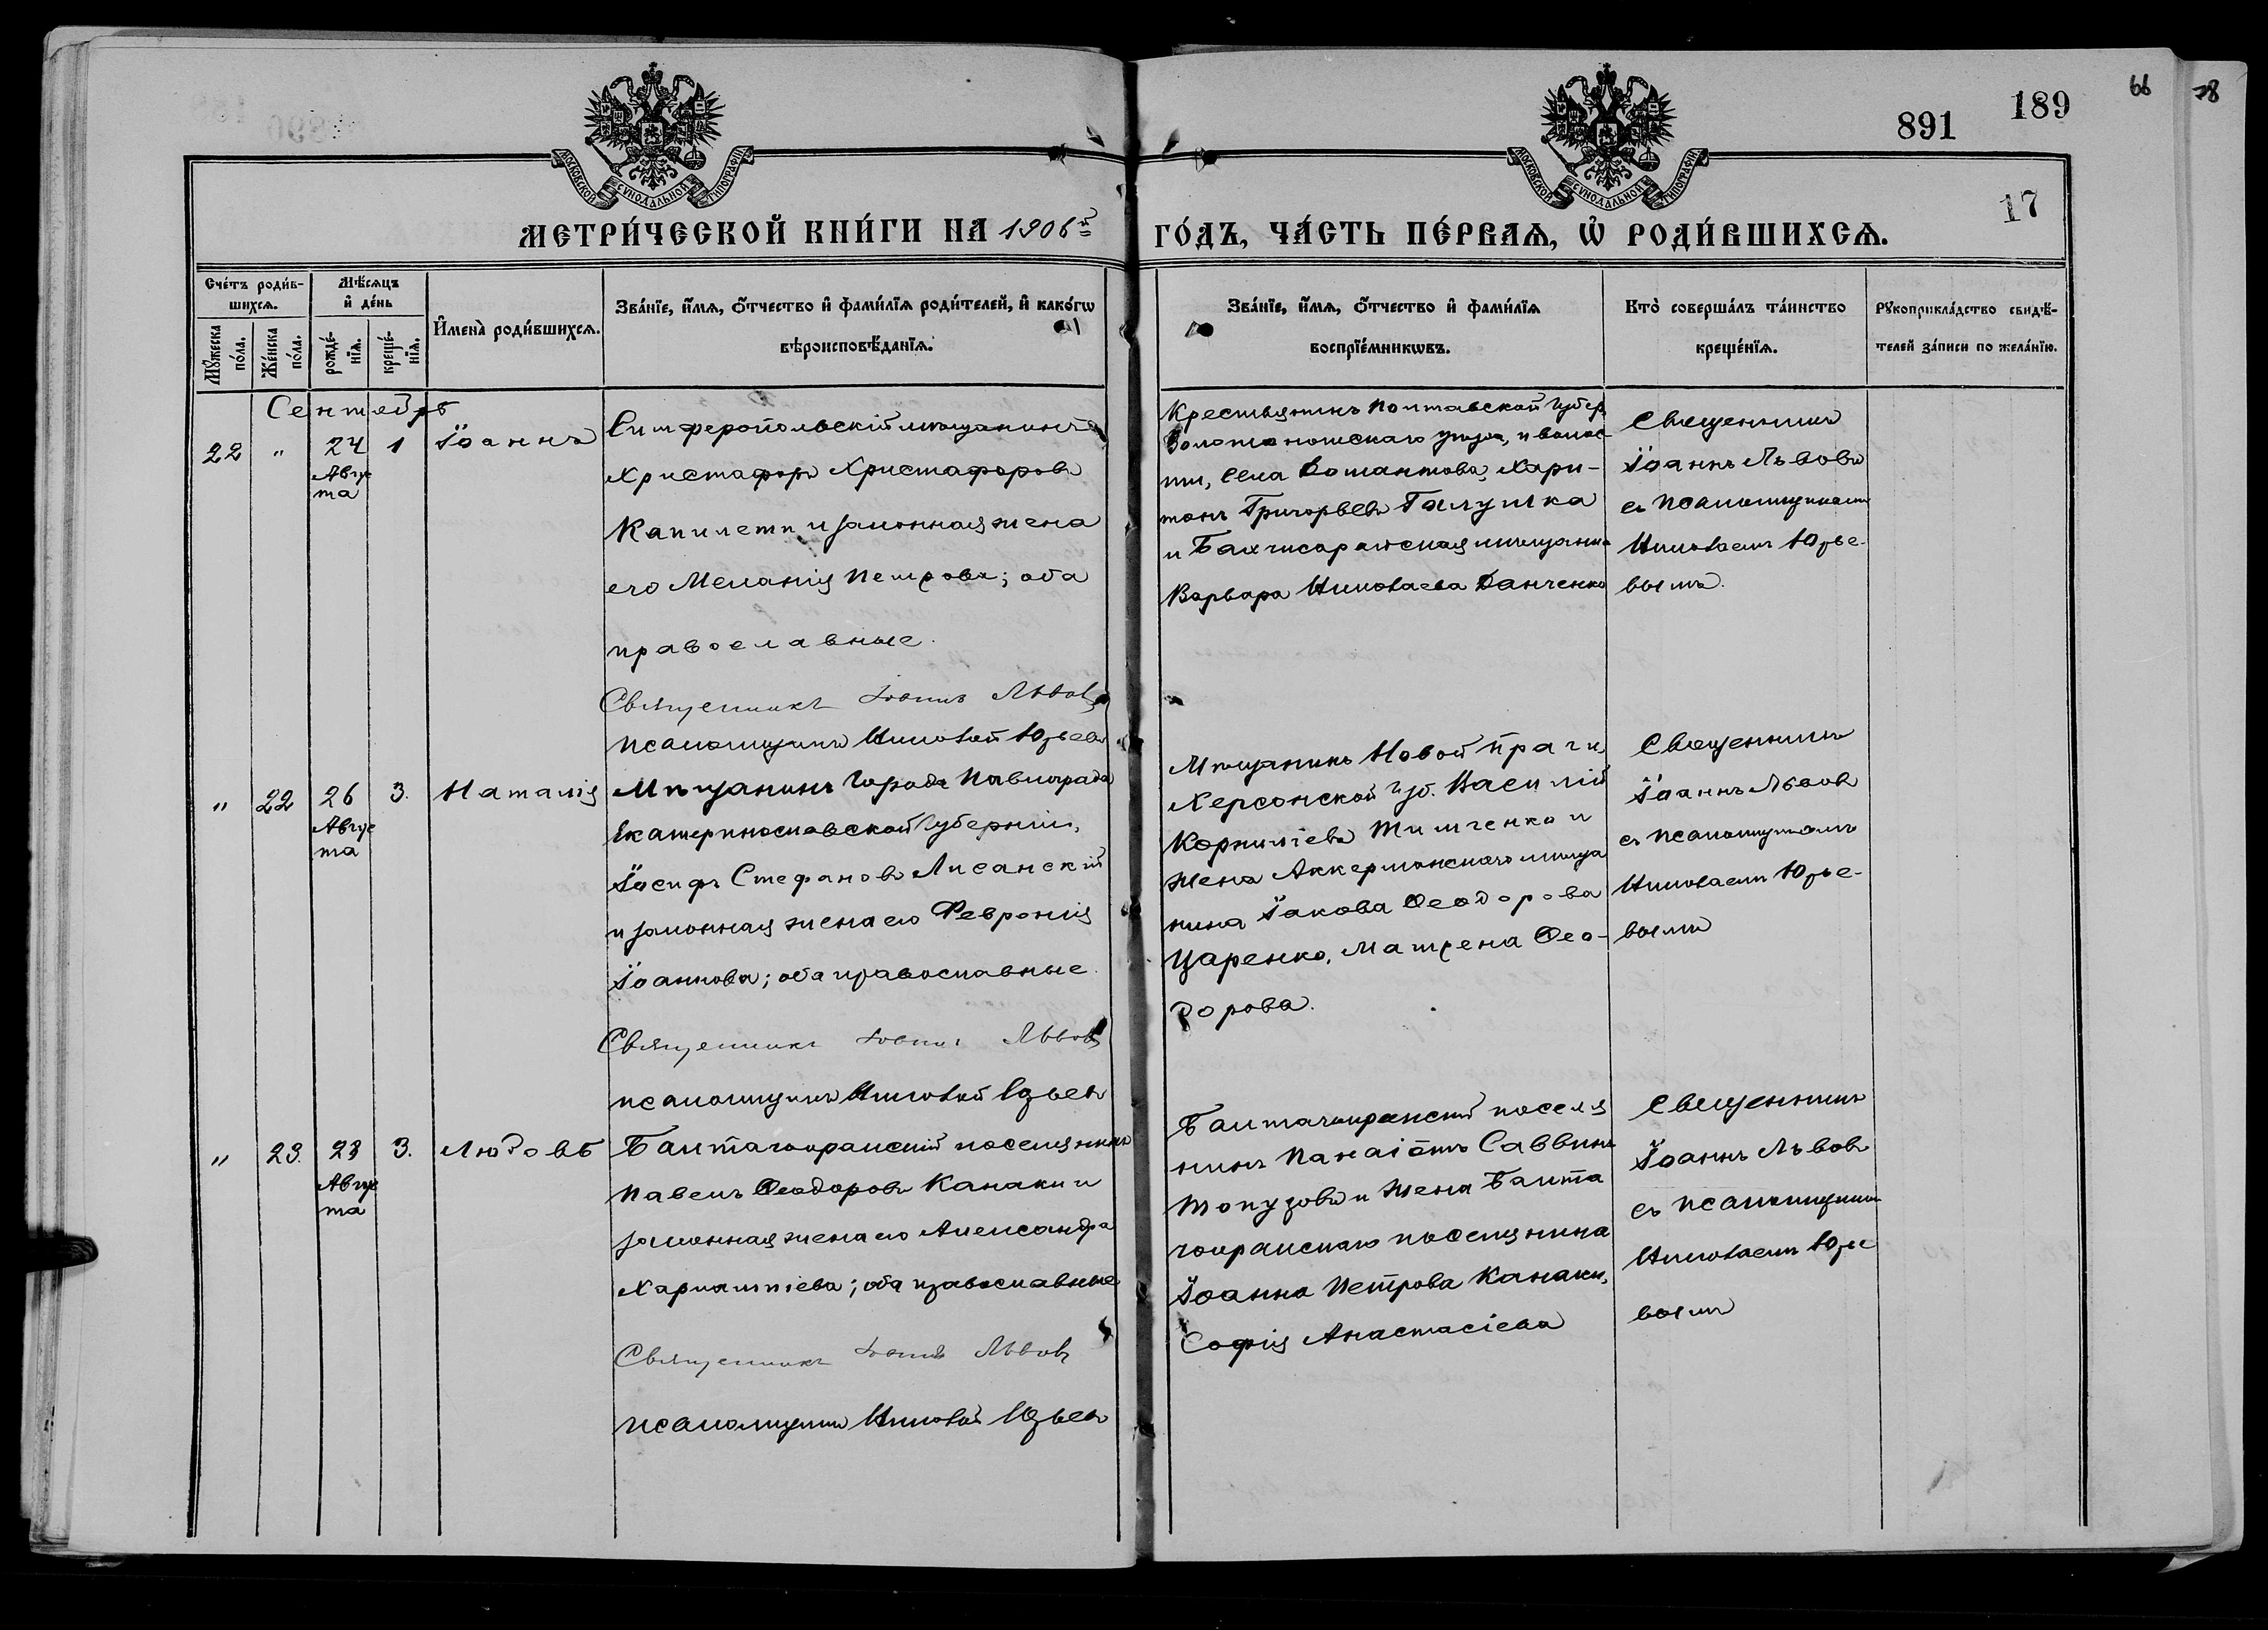 66
78
891
189
17
МОСКОВСКОЙ СѴНОДАЛЬНОЙ ТИПОГРАФІИ
МОСКОВСКОЙ СѴНОДАЛЬНОЙ ТИПОГРАФІИ
МЕТРИ́ЧЕСКОЙ КНИ́ГИ НА 1906й
ГО́ДЪ, ЧА́СТЬ ПЕ́РВАЯ, Ѡ҆ РОДИ́ВШИХСЯ.
Счетъ роди́в-
шихся.
Мꙋжеска по́ла.
Же́нска по́ла.
Мѣ́сяцъ
и҆ де́нь
рожде́-
нїя.
креще́-
нїя.
И҆мена̀ роди́вшихся.
Зва́нїе, и҆́мя, ѻ҆́тчество и҆ фами́лїя роди́телей, и҆ како́гѡ
вѣроисповѣ́данїя.
Зва́нїе, и҆́мя, ѻ҆́тчество и҆ фами́лїя
воспрїе́мникѡвъ.
Кто̀ соверша́лъ та́инство
креще́нїя.
Рꙋкоприкла́дство свидѣ́-
телей за́писи по жела́нїю.
Сентябрь
22 " 24 Авгус
та
1 Іоаннъ
Симферопольскій мѣщанинъ
Христафоръ Христафоровъ
Капилети и законная жена
его Меланія Петрова; оба
православные.
Священникъ Іоаннъ Львовъ
псаломщикъ Николай Юрьевъ
Крестьянинъ Полтавской Губер.
Золотоношскаго уѣзда, и волос-
ти, села Хари-
тонъ Григорьевъ Галушка
и Бахчисарайская мѣщанка
Варвара Николаева Данченко
Священникъ
Іоаннъ Львовъ
съ псаломщикомъ
Николаемъ Юрье-
вымъ.
" 22 26 Авгус
та
3. Наталія
Мѣщанинъ города Павлограда
Екатеринославской Губерніи,
Іосифъ Стефановъ Лисанскій
и законная жена его Февронія
Іоаннова; оба православные.
Священникъ Іоаннъ Львовъ
псаломщикъ Николай Юрьевъ
Мѣщанинъ Новой Праги,
Херсонской Губ. Василій
Корниліевъ Тимченко и
жена Аккерманскаго мѣща
нина Іакова Ѳеодорова
Царенко, Матрена Ѳео-
дорова.
Священникъ
Іоаннъ Львовъ
съ псаломщикомъ
Николаемъ Юрье-
вымъ
" 23. 23 Авгус
та
3. Любовь
Балтачокракскій поселянинъ
Павелъ Ѳеодоровъ Канаки и
законная жена его Александра
Харлампіева; оба православные
Священникъ Іоаннъ Львовъ
псаломщикъ Николай Юрьевъ
Балтачокракскій поселя
нинъ Панаіотъ Саввинъ
Топузовъ и жена Балта
чокракскаго поселянина
Іоанна Петрова Канаки,
Софія Анастасіева
Священникъ
Іоаннъ Львовъ
съ псаломщикомъ
Николаемъ Юрье
вымъ